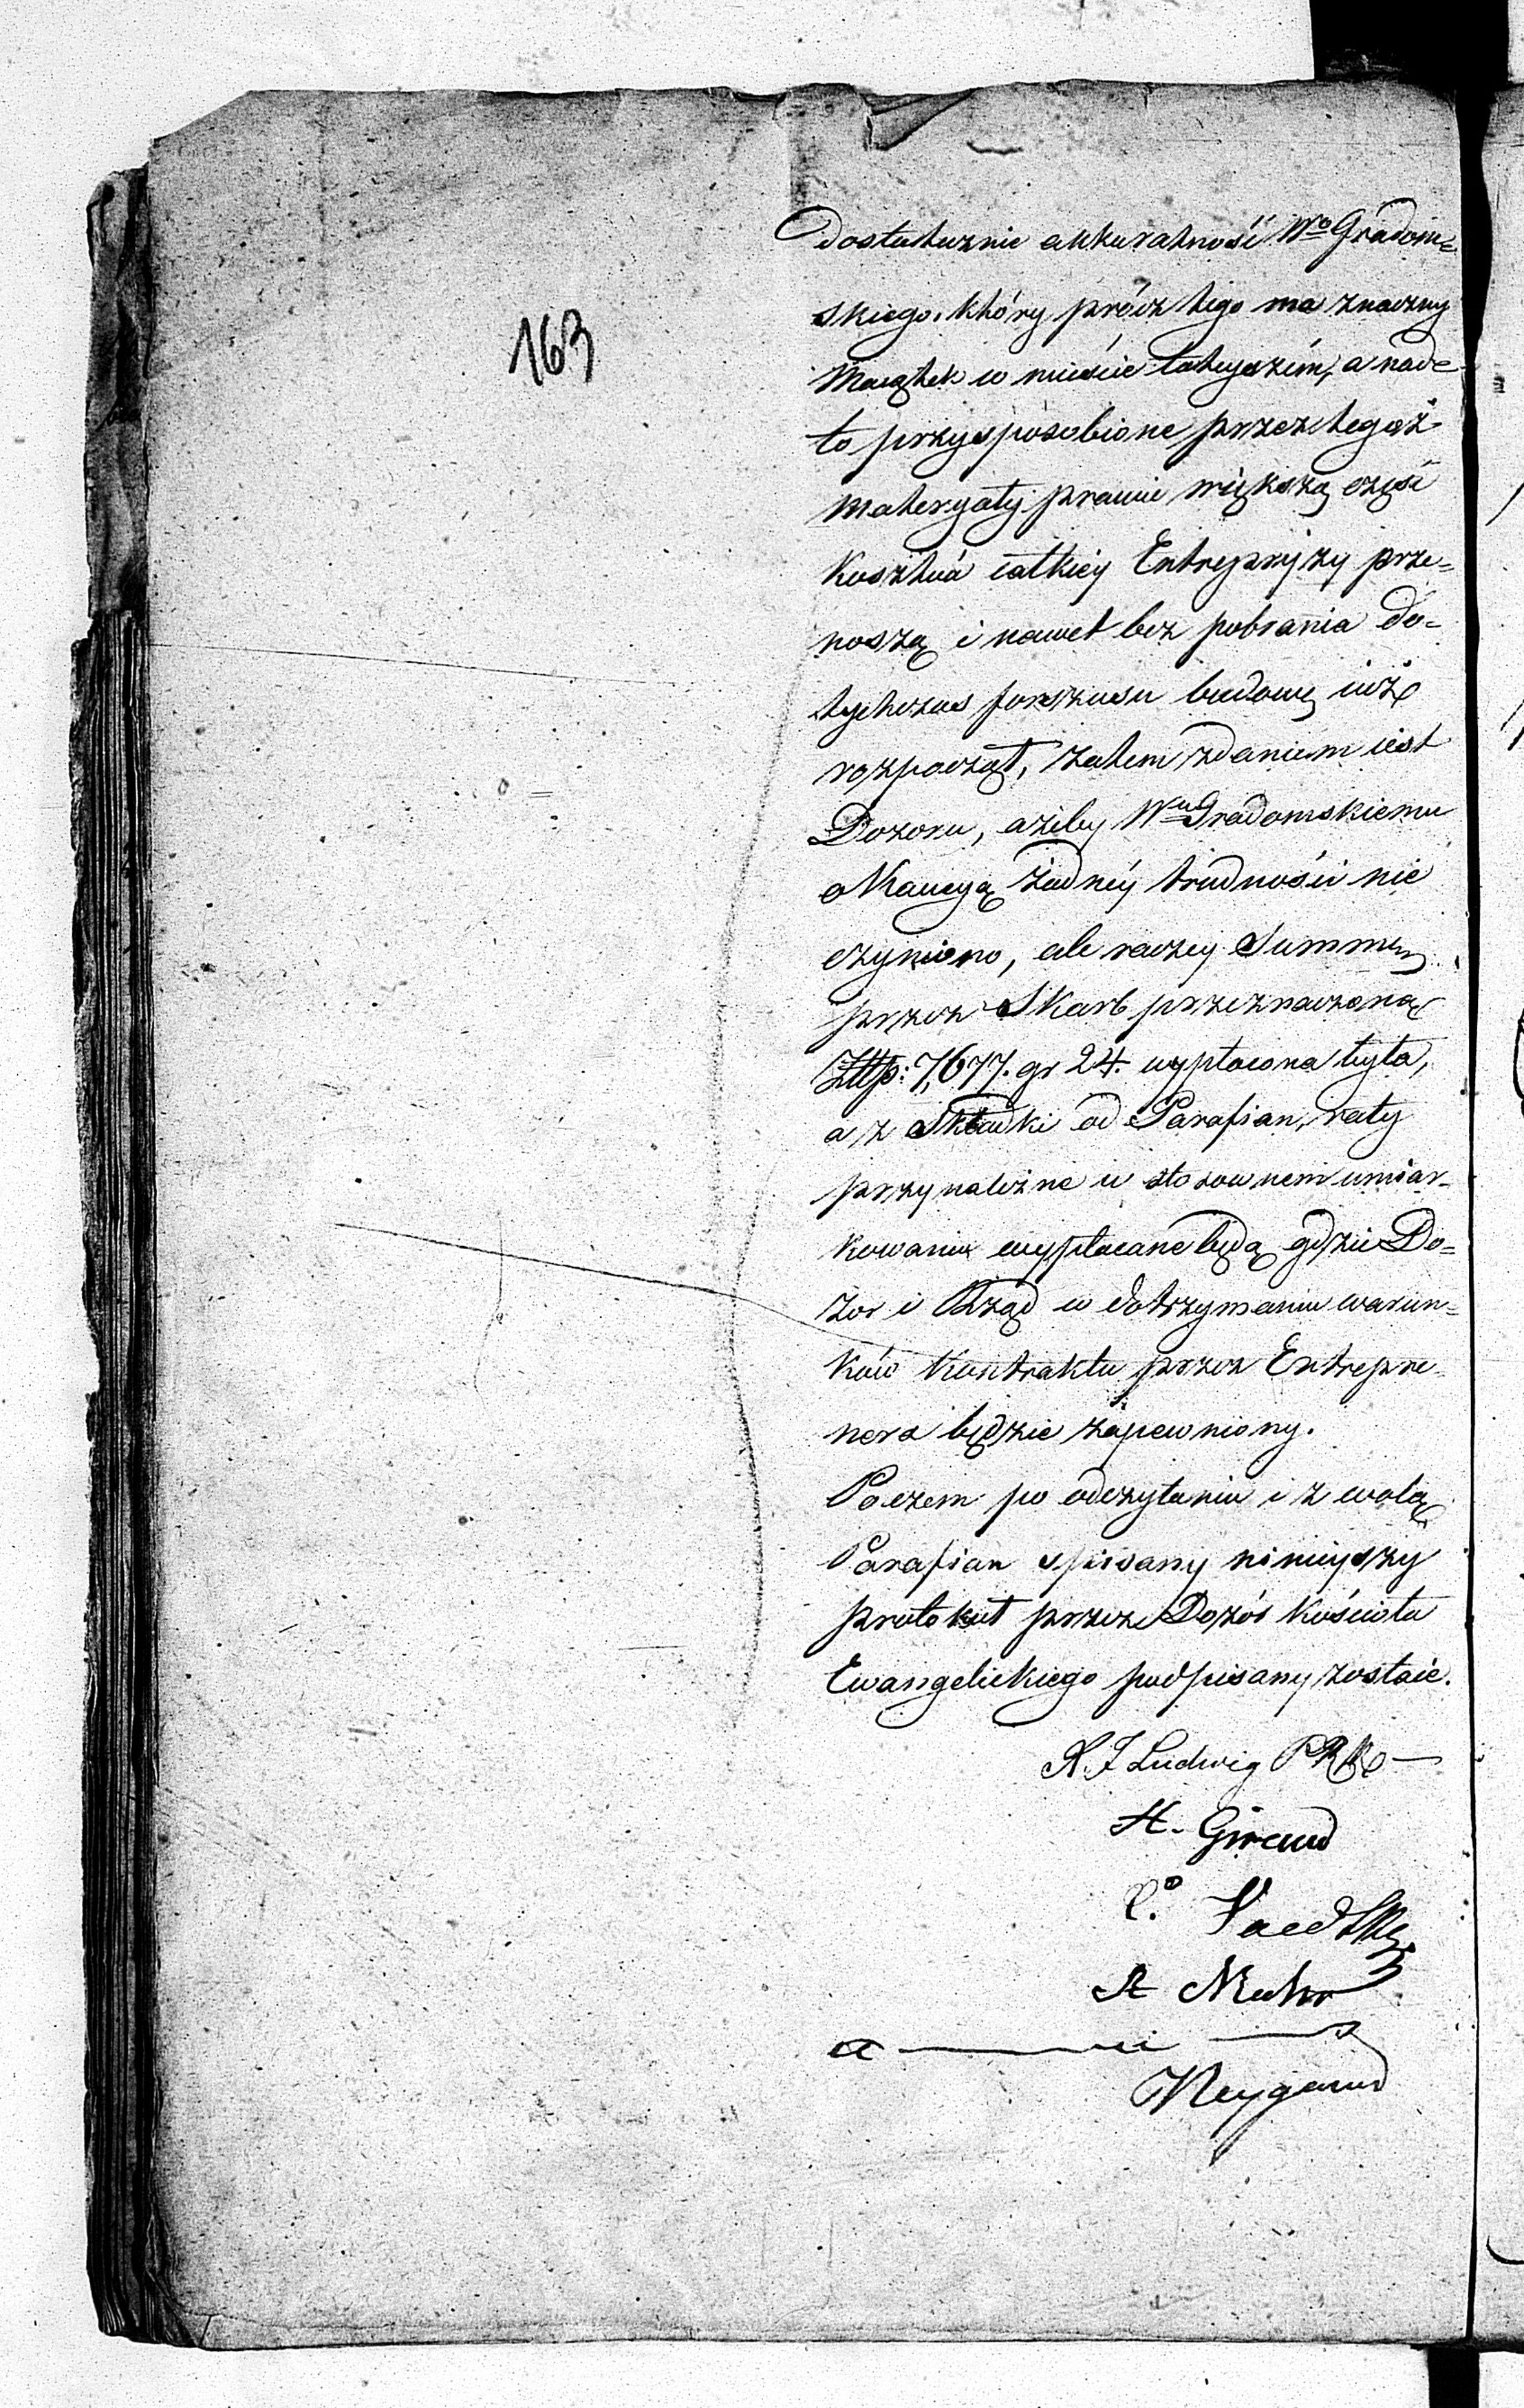 163
dostatecznie akkuratność Wo Gradom=
skiego, który prócz tego ma znaczny
Maiątek w mieście tuteyszém, a nad=
to przysposobione przez tegoż
materyały prawie większą część
kosztów całkiéy Entrepryzy prze=
noszą i nawet bez pobrania do=
tychczas forszusu budowę iuż
rozpoczął, zatem zdaniem iest
Dozoru, ażeby Wu Gradomskiemu
o Kaucyą żadnéy trudności nie
czyniono, ale raczey Summa
przez Skarb przeznaczona
Złtp: 7,677. gr 24. wypłacona była,
a z Składki od Parafian, raty
przynależne w stosownem umiar=
kowaniu wypłacane będą gdzie Do=
zor i Rząd w dotrzymaniu warun=
ków Kontraktu przez Entrepre=
nera będzie zapewniony.
Poczem po odczytaniu i z wolą
Parafian spisany ninieyszy
protokuł przez Dozór Kościoła
Ewangelickiego podpisany zostaie.
X. J Ludwig
H. Giraud

Neygaud